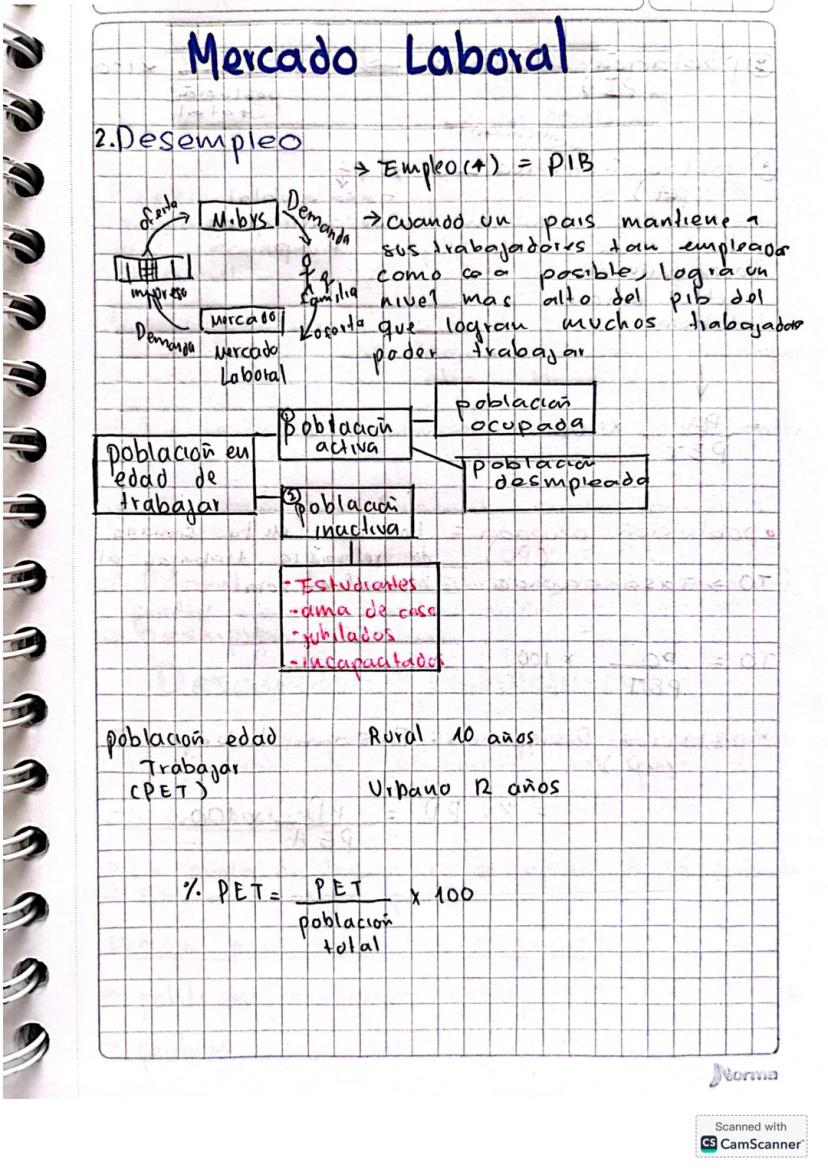 Mercado Laboral
2.Desempleo
→ Empleo(+) = PIB
oferta
M.bys
Demanda
empresa
familia
Demanda
Mercado
Loferta
Mercado
Laboral
→ cuando un pais mantiene a
sus trabajadores tan empleados
como sea posible, logra un
nivel mas alto del pib del
que logran muchos trabajadores
poder trabajar
población en
edad de
trabajar
① población
activa
población
ocupada
población
desmpleada
② población
inactiva
- Estudiantes
- ama de casa
- jubilados
- incapacitados
población edad
Trabajar
(PET)
Rural 10 años
Urbano 12 años
% PET = PET / población total x 100
Norma
Scanned with
CS CamScanner